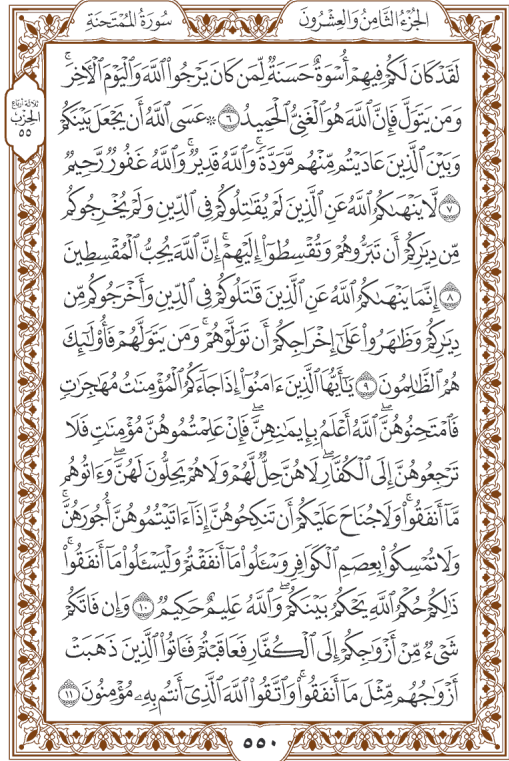 الجزء الثامن والعشرون
سورة الممتحنة
ثلاثة أرباع
الحزب
٥٥
لَقَدْ كَانَ لَكُمْ فِيهِمْ أُسْوَةٌ حَسَنَةٌ لِّمَن كَانَ يَرْجُوا۟ ٱللَّهَ وَٱلْيَوْمَ ٱلْأَخِرَ ۚ
وَمَن يَتَوَلَّ فَإِنَّ ٱللَّهَ هُوَ ٱلْغَنِىُّ ٱلْحَمِيدُ ٦ ۞ عَسَى ٱللَّهُ أَن يَجْعَلَ بَيْنَكُمْ
وَبَيْنَ ٱلَّذِينَ عَادَيْتُم مِّنْهُم مَّوَدَّةً ۚ وَٱللَّهُ قَدِيرٌ ۚ وَٱللَّهُ غَفُورٌ رَّحِيمٌ
٧ لَّا يَنْهَىٰكُمُ ٱللَّهُ عَنِ ٱلَّذِينَ لَمْ يُقَـٰتِلُوكُمْ فِى ٱلدِّينِ وَلَمْ يُخْرِجُوكُم
مِّن دِيَـٰرِكُمْ أَن تَبَرُّوهُمْ وَتُقْسِطُوٓا۟ إِلَيْهِمْ ۚ إِنَّ ٱللَّهَ يُحِبُّ ٱلْمُقْسِطِينَ
٨ إِنَّمَا يَنْهَىٰكُمُ ٱللَّهُ عَنِ ٱلَّذِينَ قَـٰتَلُوكُمْ فِى ٱلدِّينِ وَأَخْرَجُوكُم مِّن
دِيَـٰرِكُمْ وَظَـٰهَرُوا۟ عَلَىٰٓ إِخْرَاجِكُمْ أَن تَوَلَّوْهُمْ ۚ وَمَن يَتَوَلَّهُمْ فَأُو۟لَـٰٓئِكَ
هُمُ ٱلظَّـٰلِمُونَ ٩ يَـٰٓأَيُّهَا ٱلَّذِينَ ءَامَنُوٓا۟ إِذَا جَآءَكُمُ ٱلْمُؤْمِنَـٰتُ مُهَـٰجِرَٰتٍ
فَٱمْتَحِنُوهُنَّ ۖ ٱللَّهُ أَعْلَمُ بِإِيمَـٰنِهِنَّ ۖ فَإِنْ عَلِمْتُمُوهُنَّ مُؤْمِنَـٰتٍ فَلَا
تَرْجِعُوهُنَّ إِلَى ٱلْكُفَّارِ ۖ لَا هُنَّ حِلٌّ لَّهُمْ وَلَا هُمْ يَحِلُّونَ لَهُنَّ ۖ وَءَاتُوهُم
مَّآ أَنفَقُوا۟ ۚ وَلَا جُنَاحَ عَلَيْكُمْ أَن تَنكِحُوهُنَّ إِذَآ ءَاتَيْتُمُوهُنَّ أُجُورَهُنَّ ۚ
وَلَا تُمْسِكُوا۟ بِعِصَمِ ٱلْكَوَافِرِ وَسْـَٔلُوا۟ مَآ أَنفَقْتُمْ وَلْيَسْـَٔلُوا۟ مَآ أَنفَقُوا۟ ۚ
ذَٰلِكُمْ حُكْمُ ٱللَّهِ ۖ يَحْكُمُ بَيْنَكُمْ ۚ وَٱللَّهُ عَلِيمٌ حَكِيمٌ ١٠ وَإِن فَاتَكُمْ
شَىْءٌ مِّنْ أَزْوَٰجِكُمْ إِلَى ٱلْكُفَّارِ فَعَاقَبْتُمْ فَـَٔاتُوا۟ ٱلَّذِينَ ذَهَبَتْ
أَزْوَٰجُهُم مِّثْلَ مَآ أَنفَقُوا۟ ۚ وَٱتَّقُوا۟ ٱللَّهَ ٱلَّذِىٓ أَنتُم بِهِۦ مُؤْمِنُونَ ١١
٥٥٠